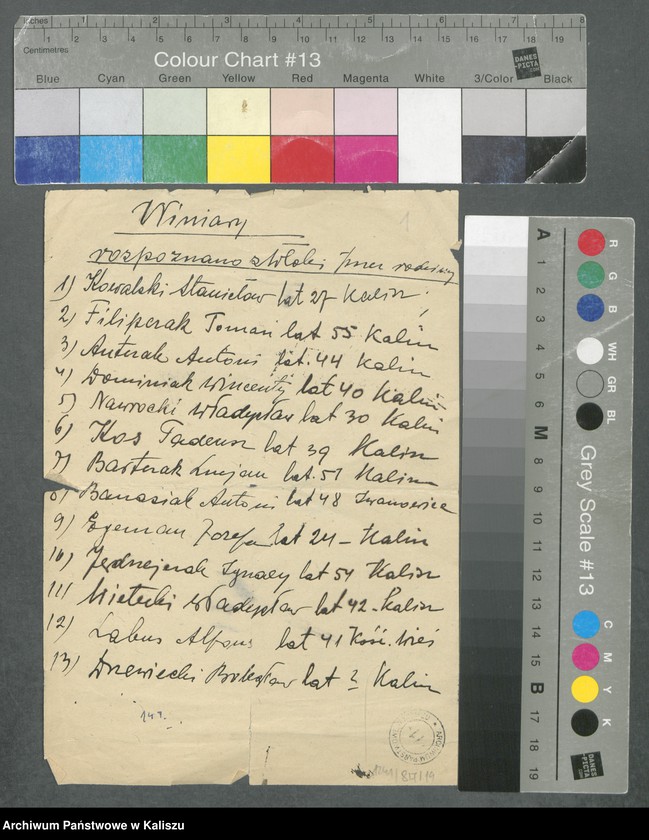 Inches 1 2 3 4 5 6 7 8
Centimetres 1 2 3 4 5 6 7 8 9 10 11 12 13 14 15 16 17 18 19
Colour Chart #13
DANES
PICTA
Blue Cyan Green Yellow Red Magenta White 3/Color Black
1
Winiary
rozpoznano zwłoki przez rodziny
1) Kowalski Stanisław lat 27 Kalisz
2) Filipczak Tomasz lat 55 Kalisz
3) Antczak Antoni lat. 44 Kalisz
4) Dominiak Wincenty lat 40 Kalisz
5) Nawrocki Władysław lat 30 Kalisz
6) Kos Tadeusz lat 39 Kalisz
7) Bartczak Lucjan lat. 51 Kalisz
8) Banasiak Antoni lat 48 Iwanowice
9) Józef lat 24 - Kalisz
10) Jędrzejczak Ignacy lat 54 Kalisz
11) Mietecki Władysław lat 42 - Kalisz
12) Labus Alfons lat 41 Kość. Wieś
13) Drzewiecki Bolesław lat ? Kalisz
A 1 2 3 4 5 6 M 8 9 10 11 12 13 14 15 B 17 18 19
R G B WH GR BL
Grey Scale #13
C M Y K
DANES
PICTA
Archiwum Państwowe w Kaliszu